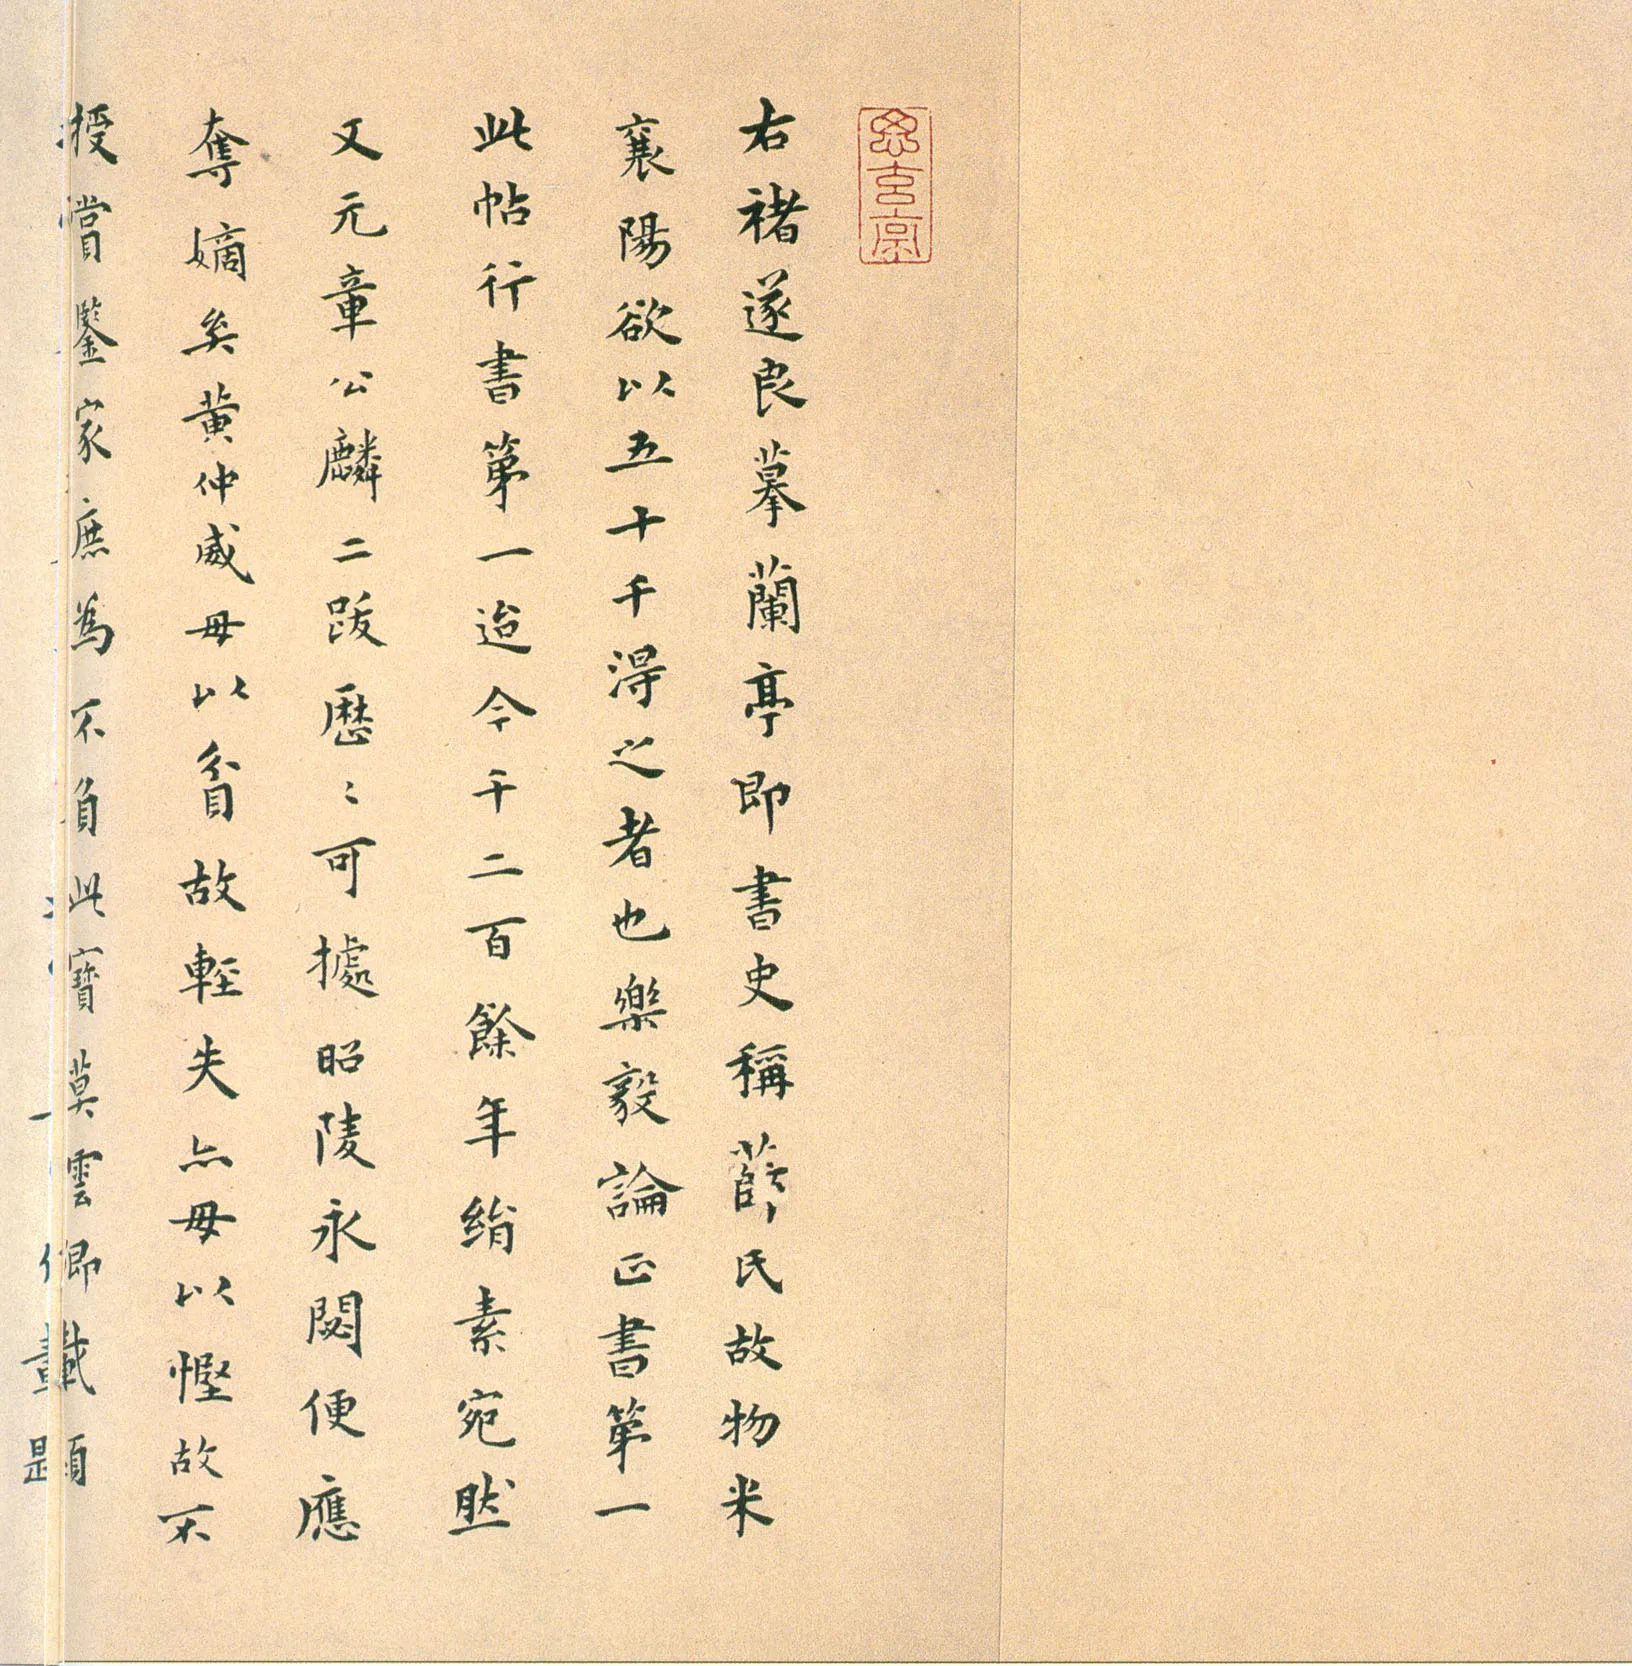 右褚遂良摹蘭亭即書史稱薛氏故物米
襄陽欲以五十千得之者也樂毅論正書第一
此帖行書第一迨今千二百餘年絹素宛然
又元章公麟二跋歷〻可據昭陵永閟便應
奪嫡矣黃仲威毋以貧故輕失亦毋以慳故不
授賞鑒家庶為不負此寶莫雲卿載題